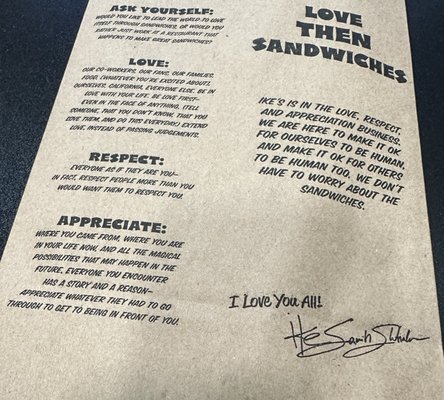 ASK YOURSELF:
WOULD YOU LIKE TO LEAD THE WORLD TO LOVE
ITSELF THROUGH SANDWICHES, OR WOULD YOU
RATHER JUST WORK AT A RESTAURANT THAT
HAPPENS TO MAKE GREAT SANDWICHES?
LOVE:
OUR CO-WORKERS, OUR FANS, OUR FAMILIES,
FOOD, (WHATEVER YOU'RE EXCITED ABOUT),
OURSELVES, CALIFORNIA, EVERYONE ELSE. BE IN
LOVE WITH YOUR LIFE. BE LOVE FIRST-
EVEN IN THE FACE OF ANYTHING. (TELL
SOMEONE, THAT YOU DON'T KNOW, THAT YOU
LOVE THEM, AND DO THIS EVERYDAY.) EXTEND
LOVE, INSTEAD OF PASSING JUDGEMENTS.
RESPECT:
EVERYONE AS IF THEY ARE YOU-
IN FACT, RESPECT PEOPLE MORE THAN YOU
WOULD WANT THEM TO RESPECT YOU.
APPRECIATE:
WHERE YOU CAME FROM, WHERE YOU ARE
IN YOUR LIFE NOW, AND ALL THE MAGICAL
POSSIBILITIES THAT MAY HAPPEN IN THE
FUTURE, EVERYONE YOU ENCOUNTER
HAS A STORY AND A REASON-
APPRECIATE WHATEVER THEY HAD TO GO
THROUGH TO GET TO BEING IN FRONT OF YOU.
LOVE
THEN
SANDWICHES
IKE'S IS IN THE LOVE, RESPECT,
AND APPRECIATION BUSINESS.
WE ARE HERE TO MAKE IT OK
FOR OURSELVES TO BE HUMAN,
AND MAKE IT OK FOR OTHERS
TO BE HUMAN TOO. WE DON'T
HAVE TO WORRY ABOUT THE
SANDWICHES.
I Love You All!